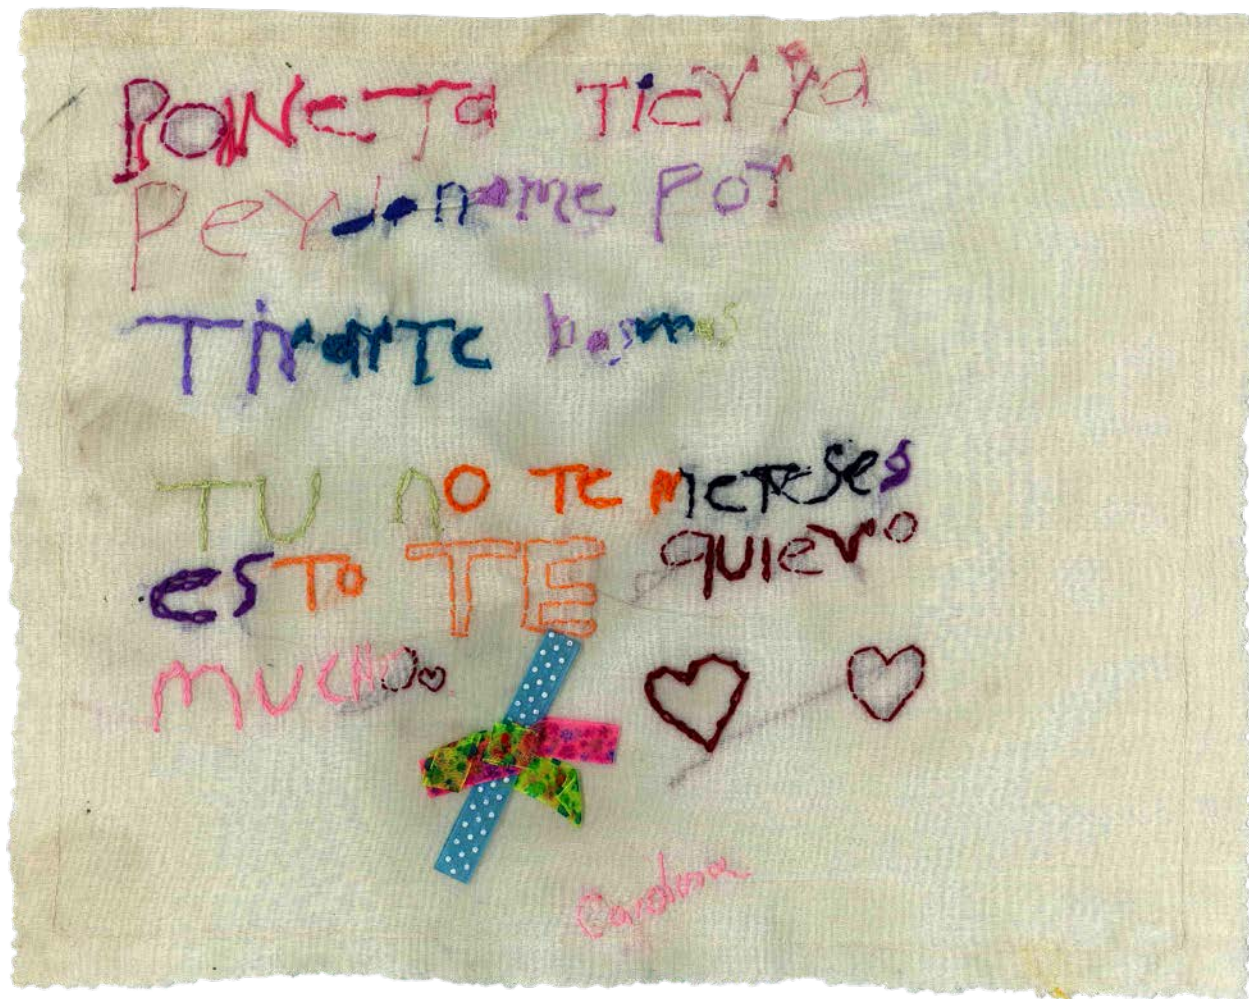 PlaNeTa Tierra
Perdoname por
Tirarte basuras
TU no Te mereses
esTo TE quiero
mucho
Carolina